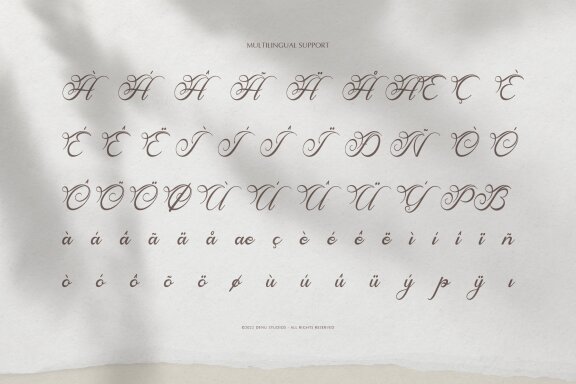 MULTILINGUAL SUPPORT
À Á Â Ã Ä Å Æ Ç È
É Ê Ë Ì Í Î Ï Ð Ñ Ò Ó
Ô Õ Ö Ø Ù Ú Û Ü Ý Þ ß
à á â ã ä å æ ç è é ê ë ì í î ï ñ
ò ó ô õ ö ø ù ú û ü ý þ ÿ ı
©2022 DENU STUDIOS - ALL RIGHTS RESERVED